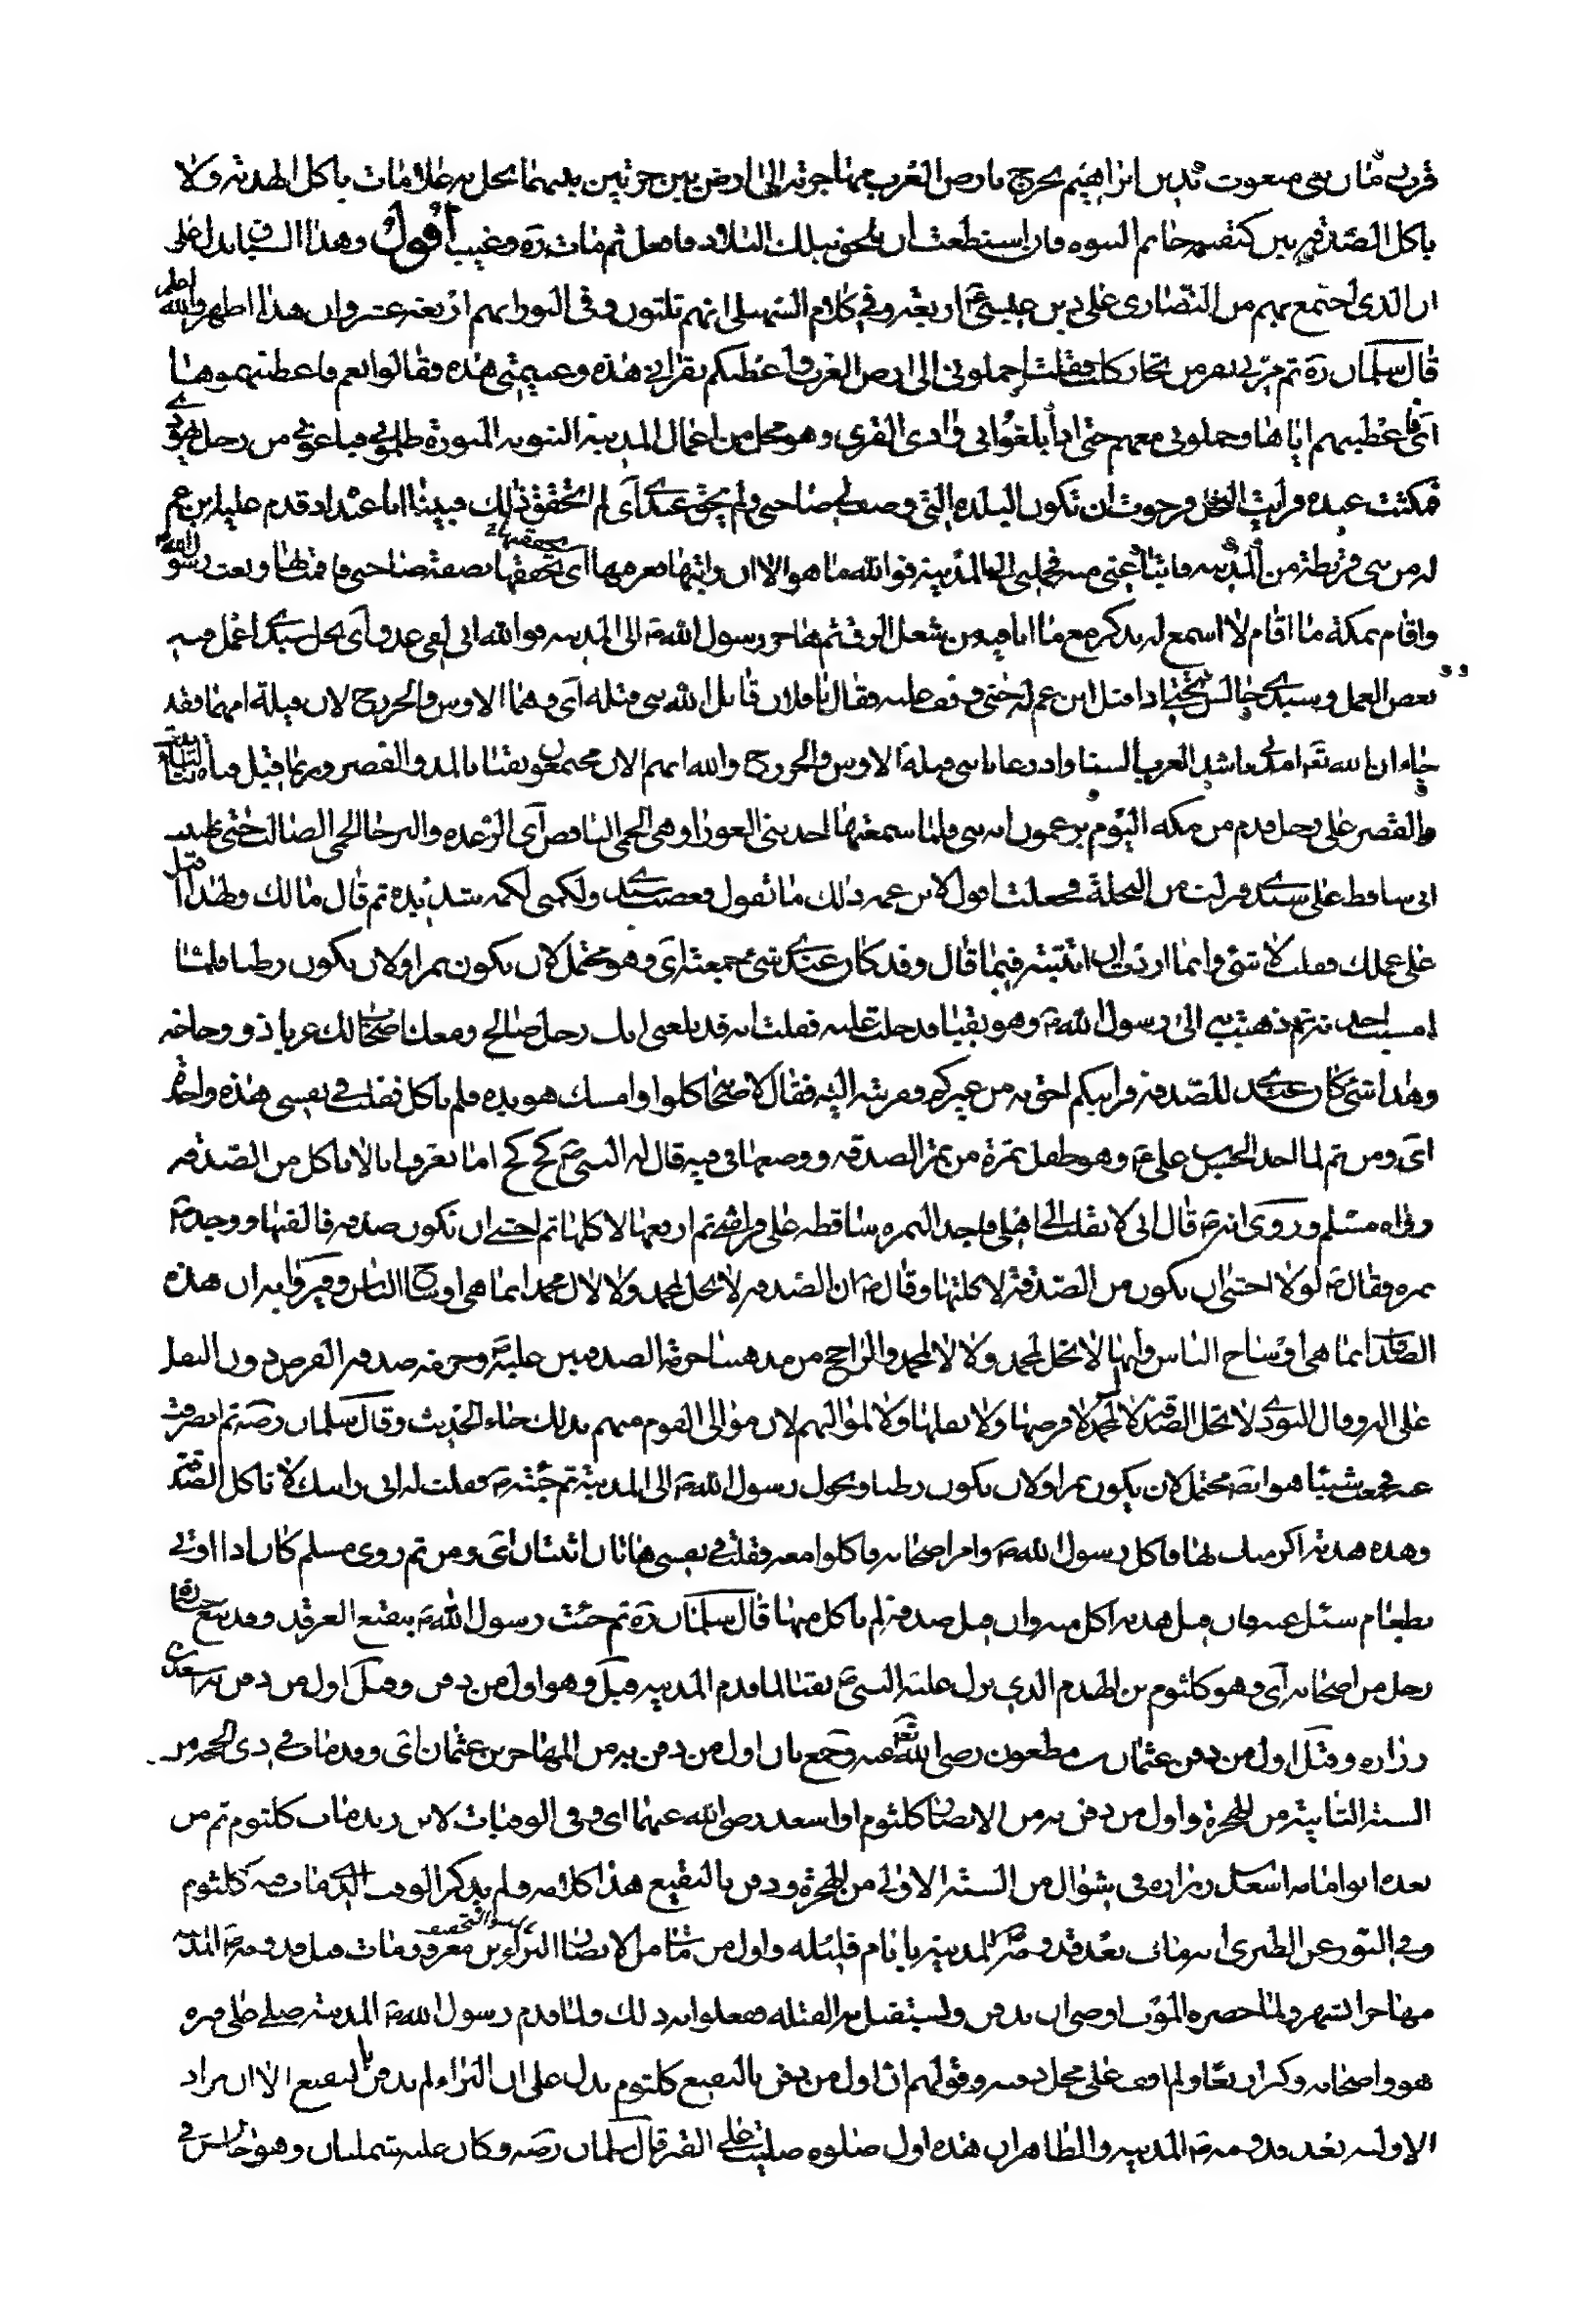 قرب زمان نبي مبعوث بدين ابراهيم يخرج بارض العرب مهاجرته الى ارض بين حرتين بينهما نخل به علامات ياكل الهدية ولا
ياكل الصدقة بين كتفيه خاتم النبوة فان استطعت ان تلحق بتلك البلاد فافعل ثم مات ره وغيب اقول وهذا السياق يدل على
ان الذي اجتمع بهم من النصارى على دين عيسى اربعة وفي كلام السهيلي انهم ثلثون وفي النور انهم اربعة عشر وان هذا اظهر والله اعلم
قال سلمان ره ثم مر بي نفر من تجار كلب فقلت احملوني الى ارض العرب واعطيكم بقراتي هذه وغنيمتي هذه فقالوا نعم فاعطيتهموها
اي فاعطيتهم اياها وحملوني معهم حتى اذا بلغوا بي وادي القرى وهو محل من اعمال المدينة النبوية المنورة ظلموني فباعوني من رجل يهودي
فمكثت عنده فرايت النخل ورجوت ان تكون البلدة التي وصف لي صاحبي ولم يحق عندي اي لم اتحقق ذلك فبينا انا عنده اذ قدم عليه ابن عم
له من بني قريظة من المدينة فابتاعني منه فحملني الى المدينة فوالله ما هو الا ان رايتها فعرفتها اي تحققتها بصفة صاحبي فاقمت بها وبعث رسول الله
واقام بمكة ما اقام لا اسمع له بذكر مع ما انا فيه من شغل الرق ثم هاجر رسول الله الى المدينة فوالله اني لفي عذق اي نخل سيدي اعمل فيه
بعض العمل وسيدي جالس تحتي اذ اقبل ابن عم له حتى وقف عليه فقال يا فلان قاتل الله بني قيلة اي وهما الاوس والخزرج لان قيلة امهما فقد
جاء ان الله تعالى امدني باشد العرب السنا وادرعا بابني قيلة الاوس والخزرج والله انهم الان مجتمعون بقبا بالمد والقصر وربما قيل قباه بتاء التانيث
والقصر على رجل قدم من مكة اليوم يزعمون انه نبي فلما سمعتها اخذتني العروا وهي الحمى النافض اي الرعدة والبرحا الحمى الصالب حتى ظننت
اني ساقط على سيدي فنزلت من النخلة فجعلت اقول لابن عمه ذلك ما تقول فغضب سيدي ولكمني لكمة شديدة ثم قال مالك ولهذا اقبل
على عملك فقلت لا شئ وانما اردت ان اتثبته فيما قال وقد كان عندي شئ جمعته اي وهو محتمل لان يكون تمرا ولان يكون رطبا فلما
امسيت اخذته ثم ذهبت به الى رسول الله وهو بقبا فدخلت عليه فقلت انه قد بلغني انك رجل صالح ومعك اصحاب لك غرباء ذوو حاجة
وهذا شئ كان عندي للصدقة فرايتكم احق به من غيركم وقربته اليه فقال لاصحابه كلوا وامسك هو يده فلم ياكل فقلت في نفسي هذه واحدة
اي ومن ثم لما اخذ الحسن بن علي وهو طفل تمرة من تمر الصدقة ووضعها في فيه قال له النبي كخ كخ اما تعرف انا لا ناكل من الصدقة
رواه مسلم وروي انه قال اني لانقلب الى اهلي فاجد التمرة ساقطة على فراشي ثم ارفعها لاكلها ثم اخشى ان تكون صدقة فالقيها ووجد
تمرة فقال لولا اخشى ان تكون من الصدقة لاكلتها وقال ان الصدقة لا تحل لمحمد ولا لال محمد انما هي اوساخ الناس وفي رواية ان هذه
الصدقات انما هي اوساخ الناس وانها لا تحل لمحمد ولا لال محمد والراجح من مذهبنا حرمة الصدقتين عليه وحرمة صدقة الفرض دون النفل
على اله وقال النووي لا تحل الصدقة لال محمد لا فرضها ولا نفلها ولا لمواليهم لان موالى القوم منهم بذلك جاء الحديث وقال سلمان ره ثم انصرفت
عنه فجمعت شيئا هو ايضا محتمل لان يكون تمرا ولان يكون رطبا وتحول رسول الله الى المدينة ثم جئته فقلت له اني رايتك لا تاكل الصدقة
وهذه هدية اكرمتك بها فاكل رسول الله وامر اصحابه فاكلوا معه وقلت في نفسي هاتان اثنتان اي ومن ثم روى مسلم كان اذا اوتي
بطعام سئل عنه فان قيل هدية اكل منه وان قيل صدقة لم ياكل منها قال سلمان ره ثم جئت رسول الله ببقيع الغرقد وقد تبع جنازة
رجل من اصحابه اي وهو كلثوم بن الهدم الذي نزل عليه النبي بقبا لما قدم المدينة قيل وهو اول من دفن وقيل اول من دفن به اسعد بن
زرارة وقيل اول من دفن عثمان بن مظعون رضي الله تعالى عنه وجمع بان اول من دفن به من المهاجرين عثمان اي وقد مات في ذي الحجة من
السنة الثانية من الهجرة واول من دفن به من الانصار كلثوم او اسعد رضي الله عنهما اي وفي الوفيات لابن زبد مات كلثوم ثم من
بعده ابو امامة اسعد بن زرارة في شوال من السنة الاولى من الهجرة ودفن بالبقيع هذا كلامه ولم يذكر الوقت الذي مات فيه كلثوم
وفي النور عن الطبري انه مات بعد قدومه المدينة بايام قليلة واول من مات من الانصار البراء بن معرور ومات قبل قدومه المدينة
مهاجرا بشهر ولما حضره الموت اوصى ان يدفن ويستقبل به القبلة ففعلوا به ذلك ولما قدم رسول الله المدينة صلى على قبره
هو واصحابه وكبر اربعا ولم اقف على محل دفنه وقولهم ان اول من دفن بالبقيع كلثوم يدل على ان البراء لم يدفن بالبقيع الا ان يراد
الاولية بعد قدومه المدينة والظاهر ان هذه اول صلوة صليت على القبر قال سلمان رضه وكان عليه شملتان وهو جالس في